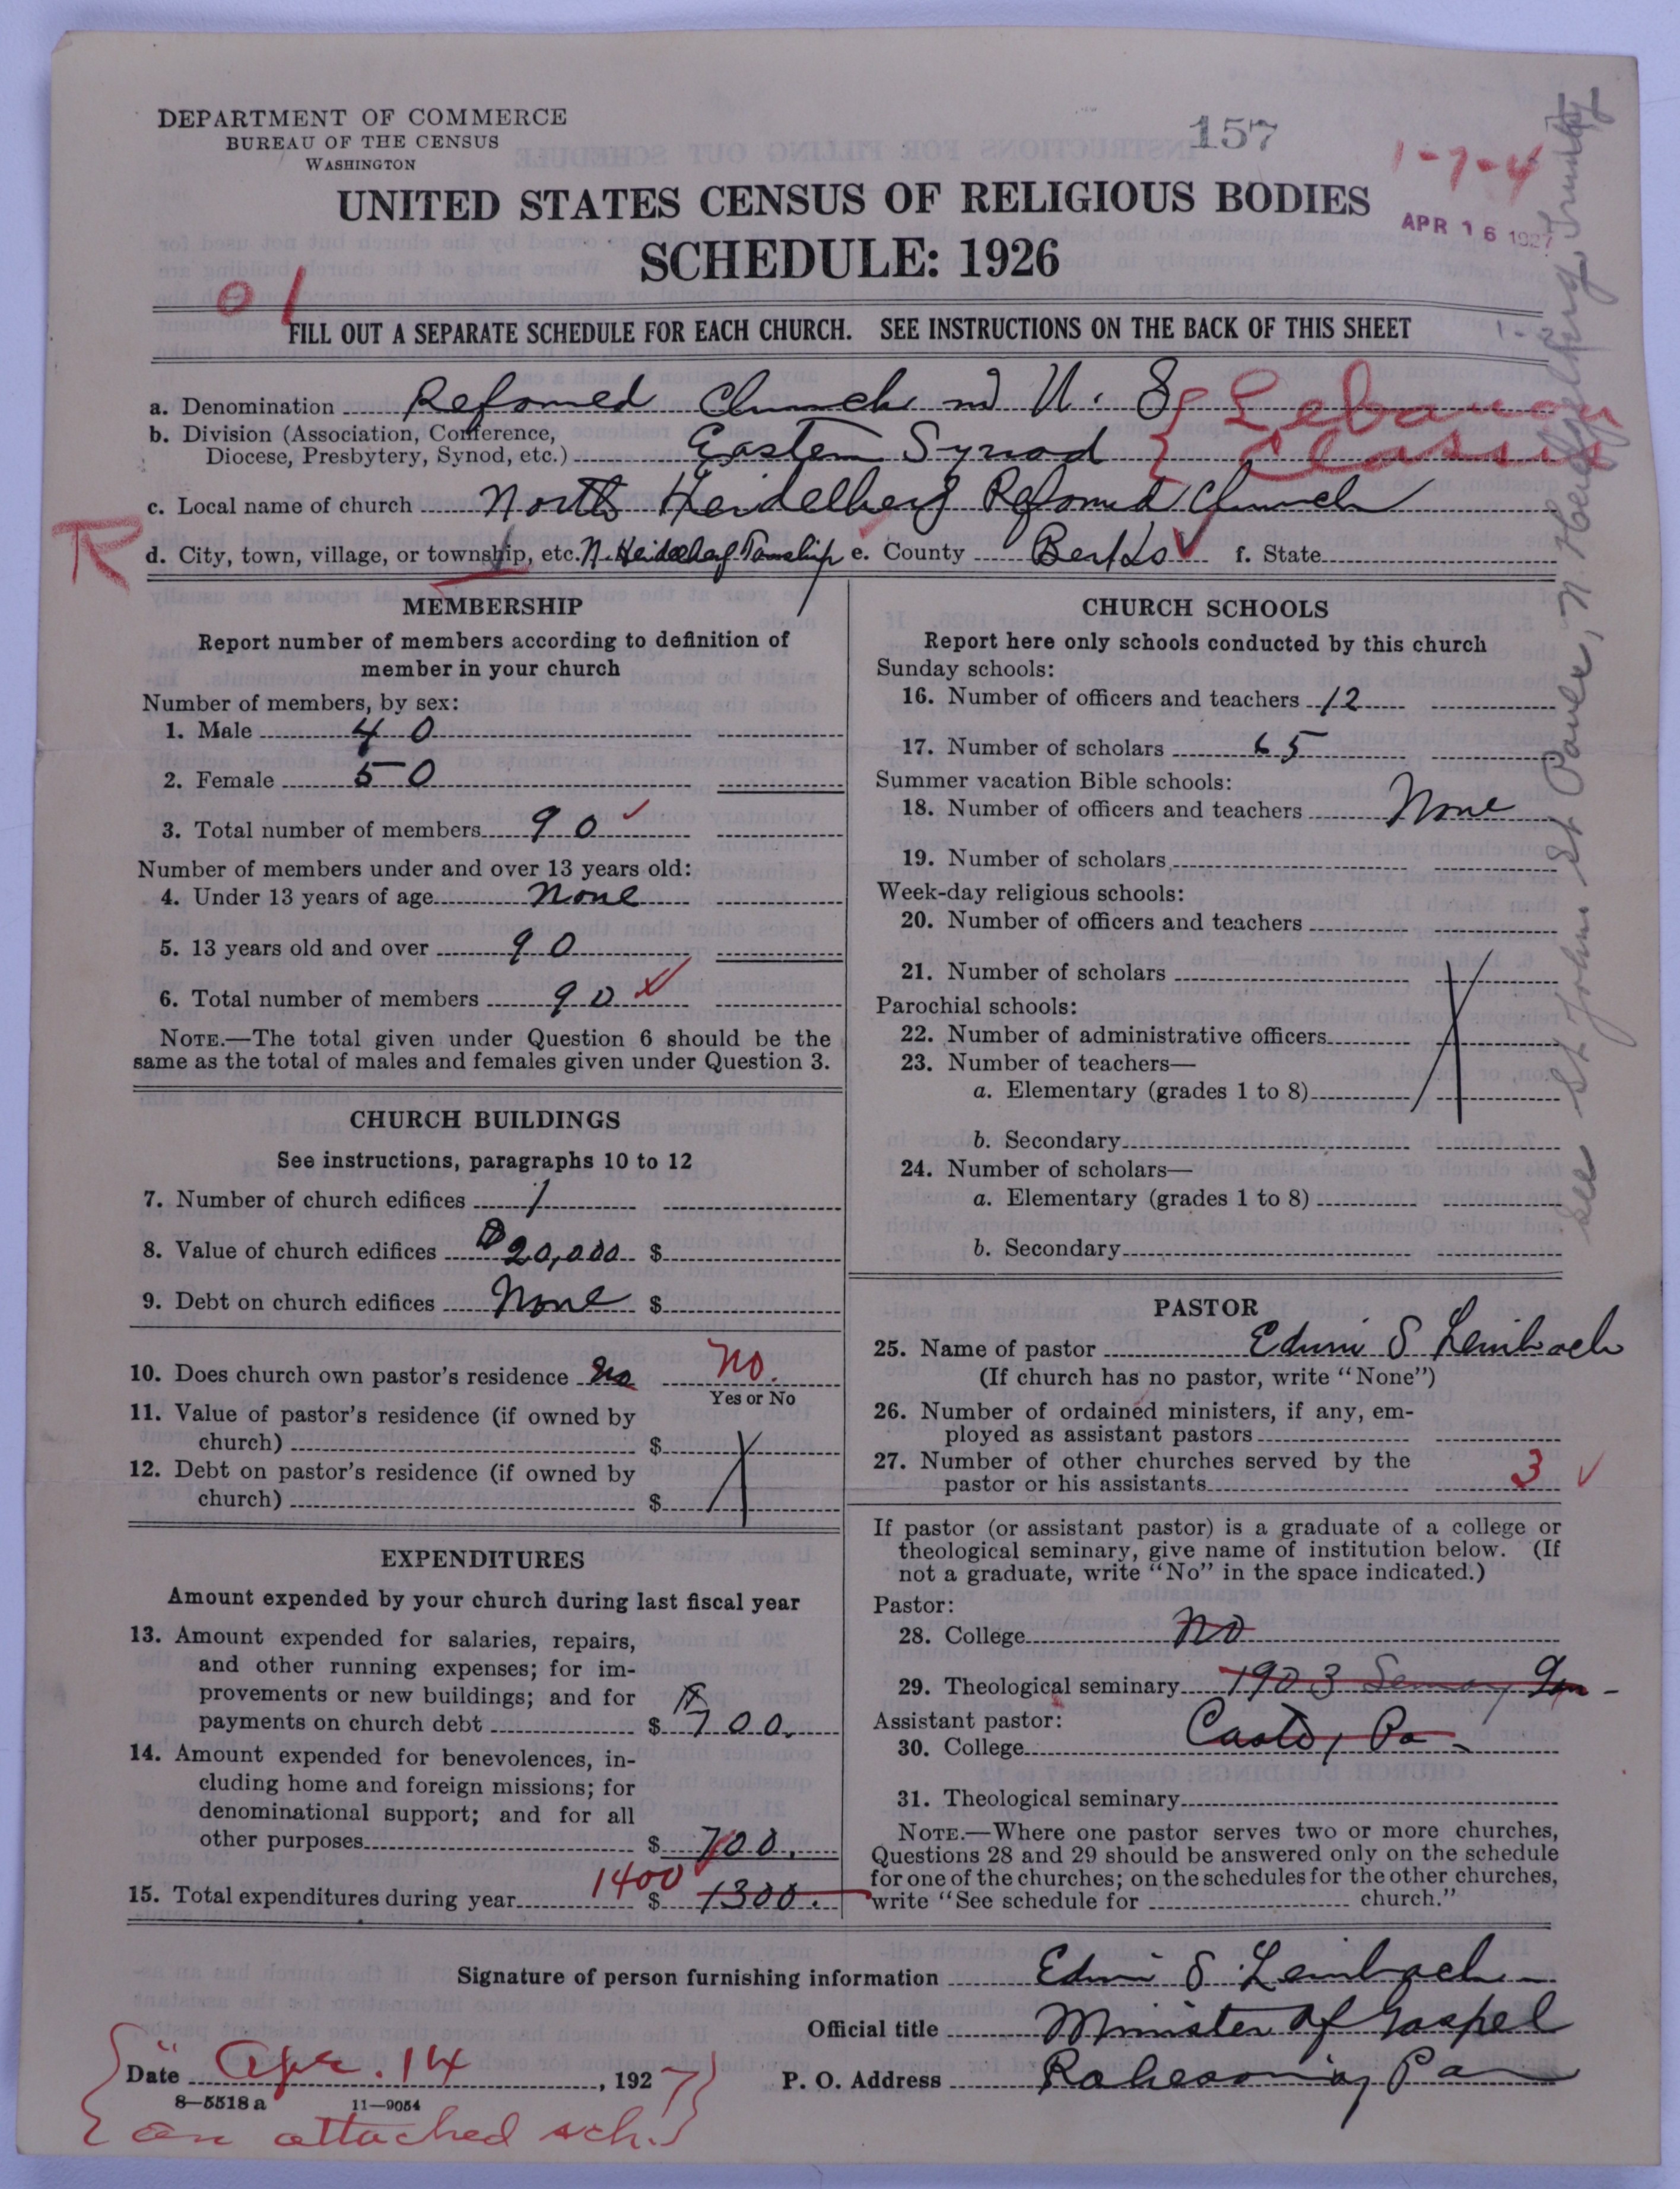 DEPARTMENT OF COMMERCE
BUREAU OF THE CENSUS
WASHINGTON
157
1-7-4
UNITED STATES CENSUS OF RELIGIOUS BODIES
APR 16 1927
SCHEDULE: 1926
01
FILL OUT A SEPARATE SCHEDULE FOR EACH CHURCH. SEE INSTRUCTIONS ON THE BACK OF THIS SHEET
a. Denomination Reformed Church in U. S. } Lebanon
b. Division (Association, Conference,
Diocese, Presbytery, Synod, etc.) Eastern Synod } Classis
c. Local name of church North Heidelberg Reformed Church
R
d. City, town, village, or township, etc. N. Heidelberg Township e. County Berks f. State
MEMBERSHIP
Report number of members according to definition of
member in your church
Number of members, by sex:
1. Male 40
2. Female 50
3. Total number of members 90
Number of members under and over 13 years old:
4. Under 13 years of age None
5. 13 years old and over 90
6. Total number of members 90
NOTE.—The total given under Question 6 should be the
same as the total of males and females given under Question 3.
CHURCH BUILDINGS
See instructions, paragraphs 10 to 12
7. Number of church edifices 1
8. Value of church edifices $20,000 $
9. Debt on church edifices None $
10. Does church own pastor's residence no No.
Yes or No
11. Value of pastor's residence (if owned by
church) $
12. Debt on pastor's residence (if owned by
church) $
EXPENDITURES
Amount expended by your church during last fiscal year
13. Amount expended for salaries, repairs,
and other running expenses; for im-
provements or new buildings; and for
payments on church debt $ 700.
14. Amount expended for benevolences, in-
cluding home and foreign missions; for
denominational support; and for all
other purposes $ 700.
15. Total expenditures during year 1400 $ 1300.
CHURCH SCHOOLS
Report here only schools conducted by this church
Sunday schools:
16. Number of officers and teachers 12
17. Number of scholars 65
Summer vacation Bible schools:
18. Number of officers and teachers None
19. Number of scholars
Week-day religious schools:
20. Number of officers and teachers
21. Number of scholars
Parochial schools:
22. Number of administrative officers
23. Number of teachers—
a. Elementary (grades 1 to 8)
b. Secondary
24. Number of scholars—
a. Elementary (grades 1 to 8)
b. Secondary
PASTOR
25. Name of pastor Edwin S Leinbach
(If church has no pastor, write "None")
26. Number of ordained ministers, if any, em-
ployed as assistant pastors
27. Number of other churches served by the
pastor or his assistants 3
If pastor (or assistant pastor) is a graduate of a college or
theological seminary, give name of institution below. (If
not a graduate, write "No" in the space indicated.)
Pastor:
28. College No
29. Theological seminary 1903
Assistant pastor:
30. College Pa
31. Theological seminary
NOTE.—Where one pastor serves two or more churches,
Questions 28 and 29 should be answered only on the schedule
for one of the churches; on the schedules for the other churches,
write "See schedule for church."
Signature of person furnishing information Edwin S. Leinbach
Official title Minister of Gospel
Date Apr. 14, 1927
P. O. Address Pa
8—5518 a 11—9054
on attached sch.
See St John St Pauls, N. Heidelberg, Trinity